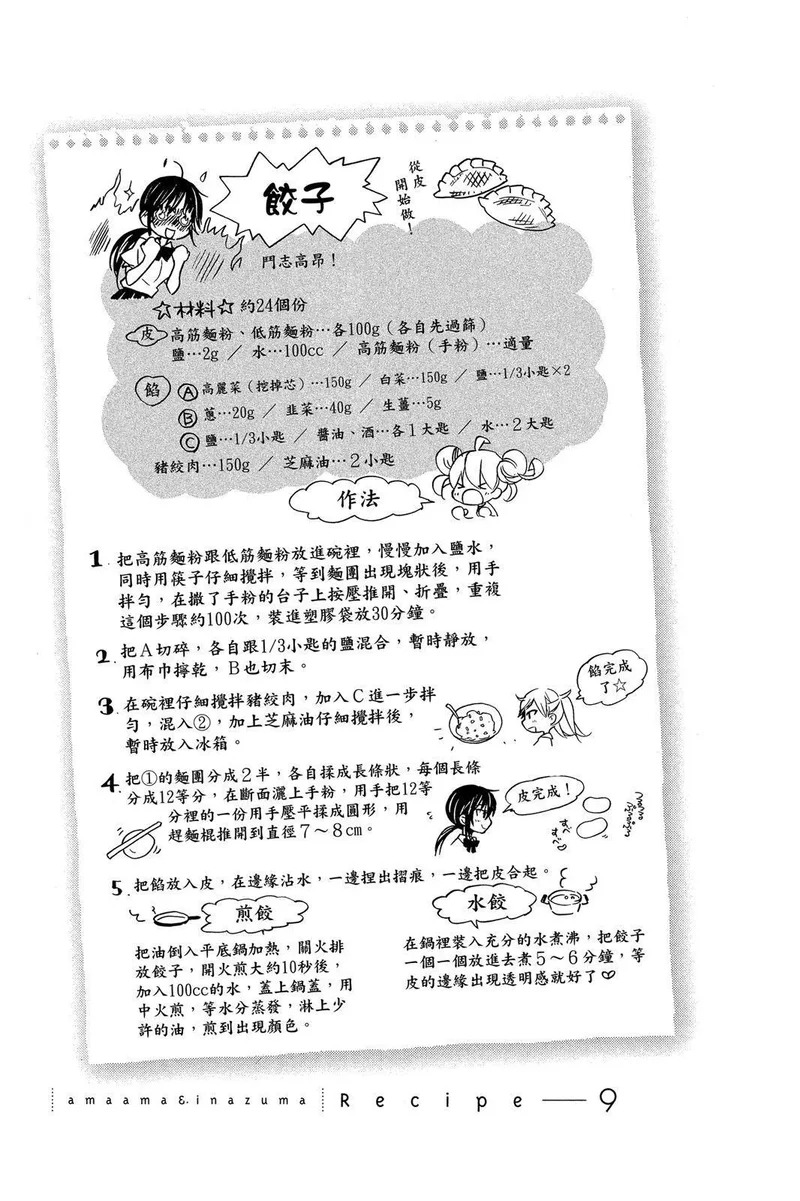 餃子
從皮
開始做！
鬥志高昂！
☆材料☆ 約24個份
皮 高筋麵粉、低筋麵粉…各100g（各自先過篩）
鹽…2g ／ 水…100cc ／ 高筋麵粉（手粉）…適量
餡 Ⓐ 高麗菜（挖掉芯）…150g ／ 白菜…150g ／ 鹽…1/3小匙×2
Ⓑ 蔥…20g ／ 韭菜…40g ／ 生薑…5g
Ⓒ 鹽…1/3小匙 ／ 醬油、酒…各１大匙 ／ 水…２大匙
豬絞肉…150g ／ 芝麻油…２小匙
作法
1. 把高筋麵粉跟低筋麵粉放進碗裡，慢慢加入鹽水，
同時用筷子仔細攪拌，等到麵團出現塊狀後，用手
拌勻，在撒了手粉的台子上按壓推開、折疊，重複
這個步驟約100次，裝進塑膠袋放30分鐘。
2. 把Ａ切碎，各自跟1/3小匙的鹽混合，暫時靜放，
用布巾擰乾，Ｂ也切末。
3. 在碗裡仔細攪拌豬絞肉，加入Ｃ進一步拌
勻，混入②，加上芝麻油仔細攪拌後，
暫時放入冰箱。
餡完成
了☆
4. 把①的麵團分成２半，各自揉成長條狀，每個長條
分成12等分，在斷面灑上手粉，用手把12等
分裡的一份用手壓平揉成圓形，用
趕麵棍推開到直徑７～８cm。
皮完成！
すべ
すべ
5. 把餡放入皮，在邊緣沾水，一邊捏出摺痕，一邊把皮合起。
煎餃
把油倒入平底鍋加熱，關火排
放餃子，開火煎大約10秒後，
加入100cc的水，蓋上鍋蓋，用
中火煎，等水分蒸發，淋上少
許的油，煎到出現顏色。
水餃
在鍋裡裝入充分的水煮沸，把餃子
一個一個放進去煮５～６分鐘，等
皮的邊緣出現透明感就好了♡
amaama&inazuma Recipe — 9